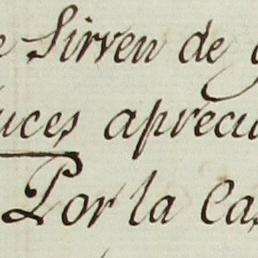 e Sirven de
uces aprecia
Por la Cas